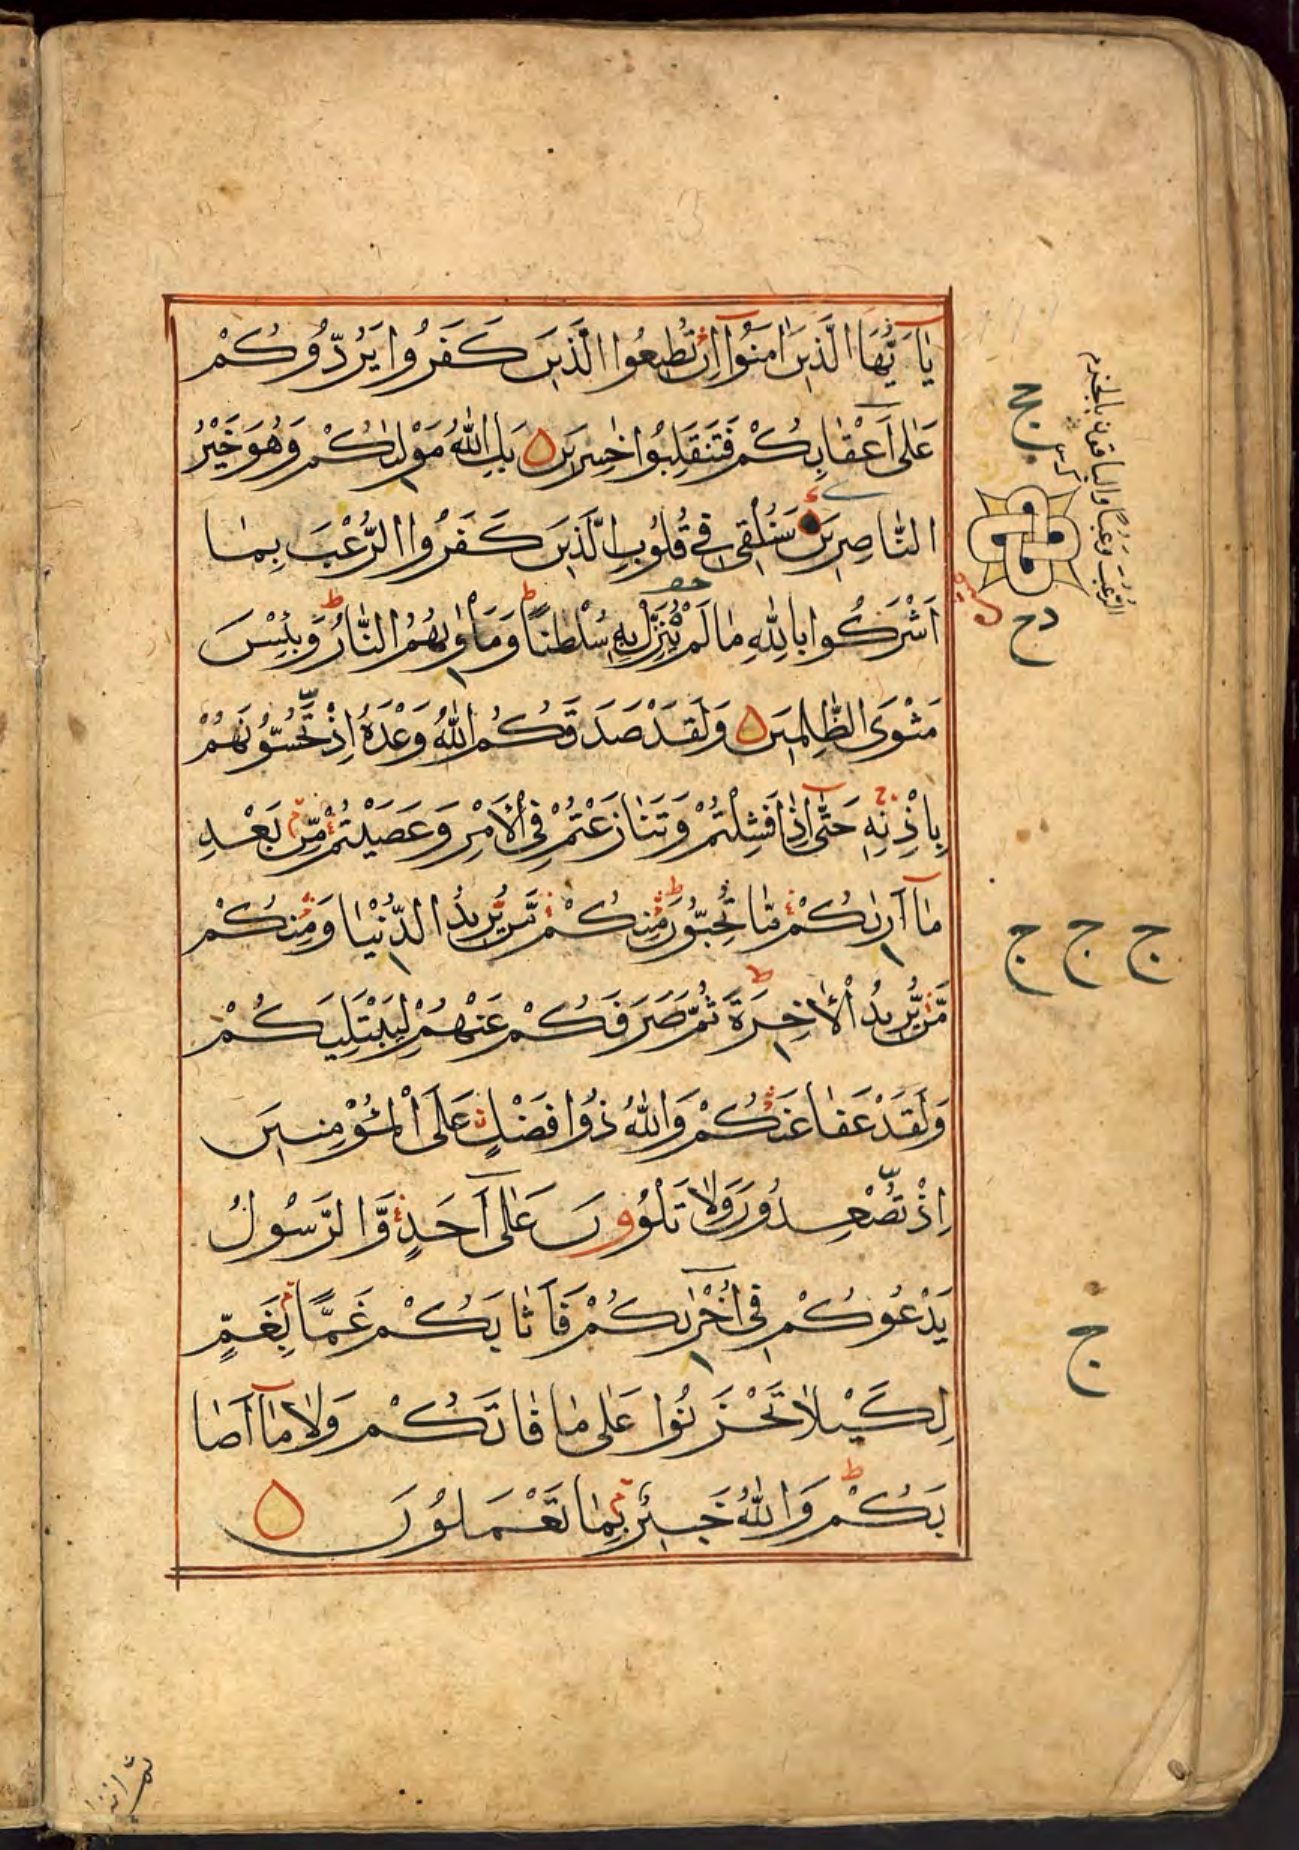 يٰٓاَيُّهَا الَّذِينَ اٰمَنُوٓا اِنْ تُطِيعُوا الَّذِينَ كَفَرُوا يَرُدُّوكُمْ
عَلٰٓى اَعْقَابِكُمْ فَتَنْقَلِبُوا خٰسِرِينَ بَلِ اللّٰهُ مَوْلٰىكُمْ وَهُوَ خَيْرُ
النَّاصِرِينَ سَنُلْقِى فِى قُلُوبِ الَّذِينَ كَفَرُوا الرُّعْبَ بِمَا
اَشْرَكُوا بِاللّٰهِ مَا لَمْ يُنَزِّلْ بِهٖ سُلْطٰنًا وَمَأْوٰىهُمُ النَّارُ وَبِئْسَ
مَثْوَى الظّٰلِمِينَ وَلَقَدْ صَدَقَكُمُ اللّٰهُ وَعْدَهُ اِذْ تَحُسُّونَهُمْ
بِاِذْنِهٖ حَتّٰٓى اِذَا فَشِلْتُمْ وَتَنَازَعْتُمْ فِى الْاَمْرِ وَعَصَيْتُمْ مِّنْ بَعْدِ
مَآ اَرٰىكُمْ مَّا تُحِبُّونَ مِنْكُمْ مَّنْ يُّرِيدُ الدُّنْيَا وَمِنْكُمْ
مَّنْ يُّرِيدُ الْاٰخِرَةَ ثُمَّ صَرَفَكُمْ عَنْهُمْ لِيَبْتَلِيَكُمْ
وَلَقَدْ عَفَا عَنْكُمْ وَاللّٰهُ ذُوا فَضْلٍ عَلَى الْمُؤْمِنِينَ
اِذْ تُصْعِدُونَ وَلَا تَلْوُونَ عَلٰٓى اَحَدٍ وَّالرَّسُولُ
يَدْعُوكُمْ فِىٓ اُخْرٰىكُمْ فَاَثَابَكُمْ غَمًّا بِغَمٍّ
لِكَيْلَا تَحْزَنُوا عَلٰى مَا فَاتَكُمْ وَلَا مَآ اَصَا
بَكُمْ وَاللّٰهُ خَبِيرٌ بِمَا تَعْمَلُونَ
الرُّعُبَ وَرُعُبًا والباقون بالجزم
ج
دج
ج ج ج
ج